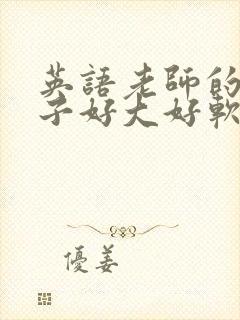 英語老師的
子好大好軟
優姜